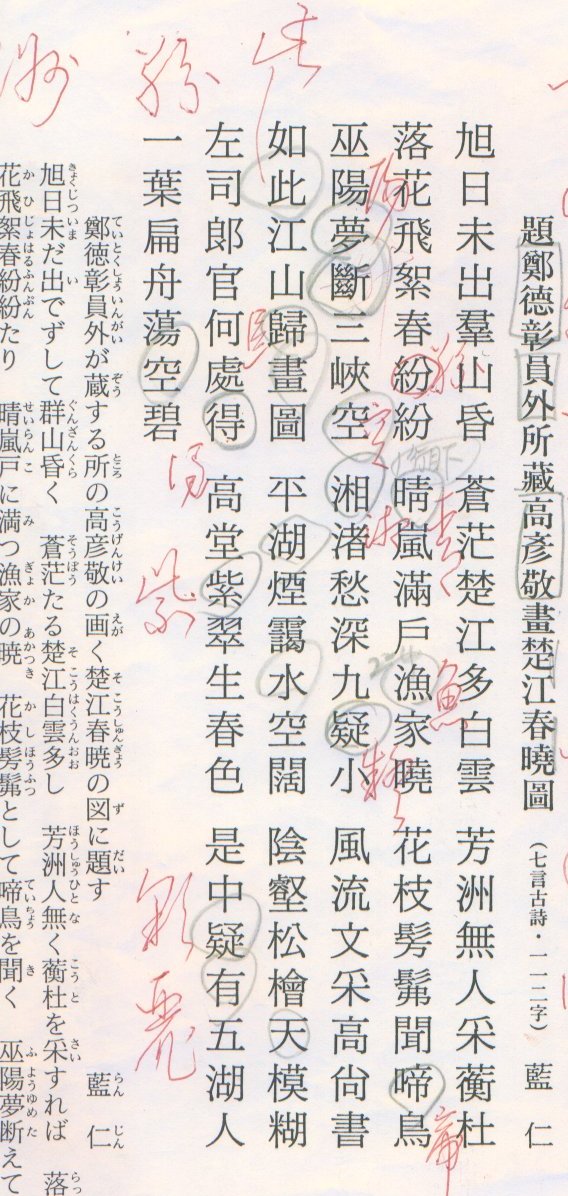 題鄭德彰員外所藏高彥敬畫楚江春曉圖(七言古詩・一一二字) 藍 仁
旭日未出羣山昏 蒼茫楚江多白雲 芳洲無人采蘅杜
落花飛絮春紛紛 晴嵐滿戶漁家曉 花枝髣髴聞啼鳥
巫陽夢斷三峽空 湘渚愁深九疑小 風流文采高尙書
如此江山歸畫圖 平湖煙靄水空闊 陰壑松檜天模糊
左司郎官何處得 高堂紫翠生春色 是中疑有五湖人
一葉扁舟蕩空碧
鄭徳彰員外が蔵する所の高彦敬の画く楚江春暁の図に題す 藍 仁
旭日未だ出でずして 群山昏く 蒼茫たる楚江白雲多し 芳洲人無く蘅杜を采すれば 落
花飛絮春紛紛たり 晴嵐戸に満つ漁家の暁 花枝髣髴として啼鳥を聞く 巫陽夢断えて